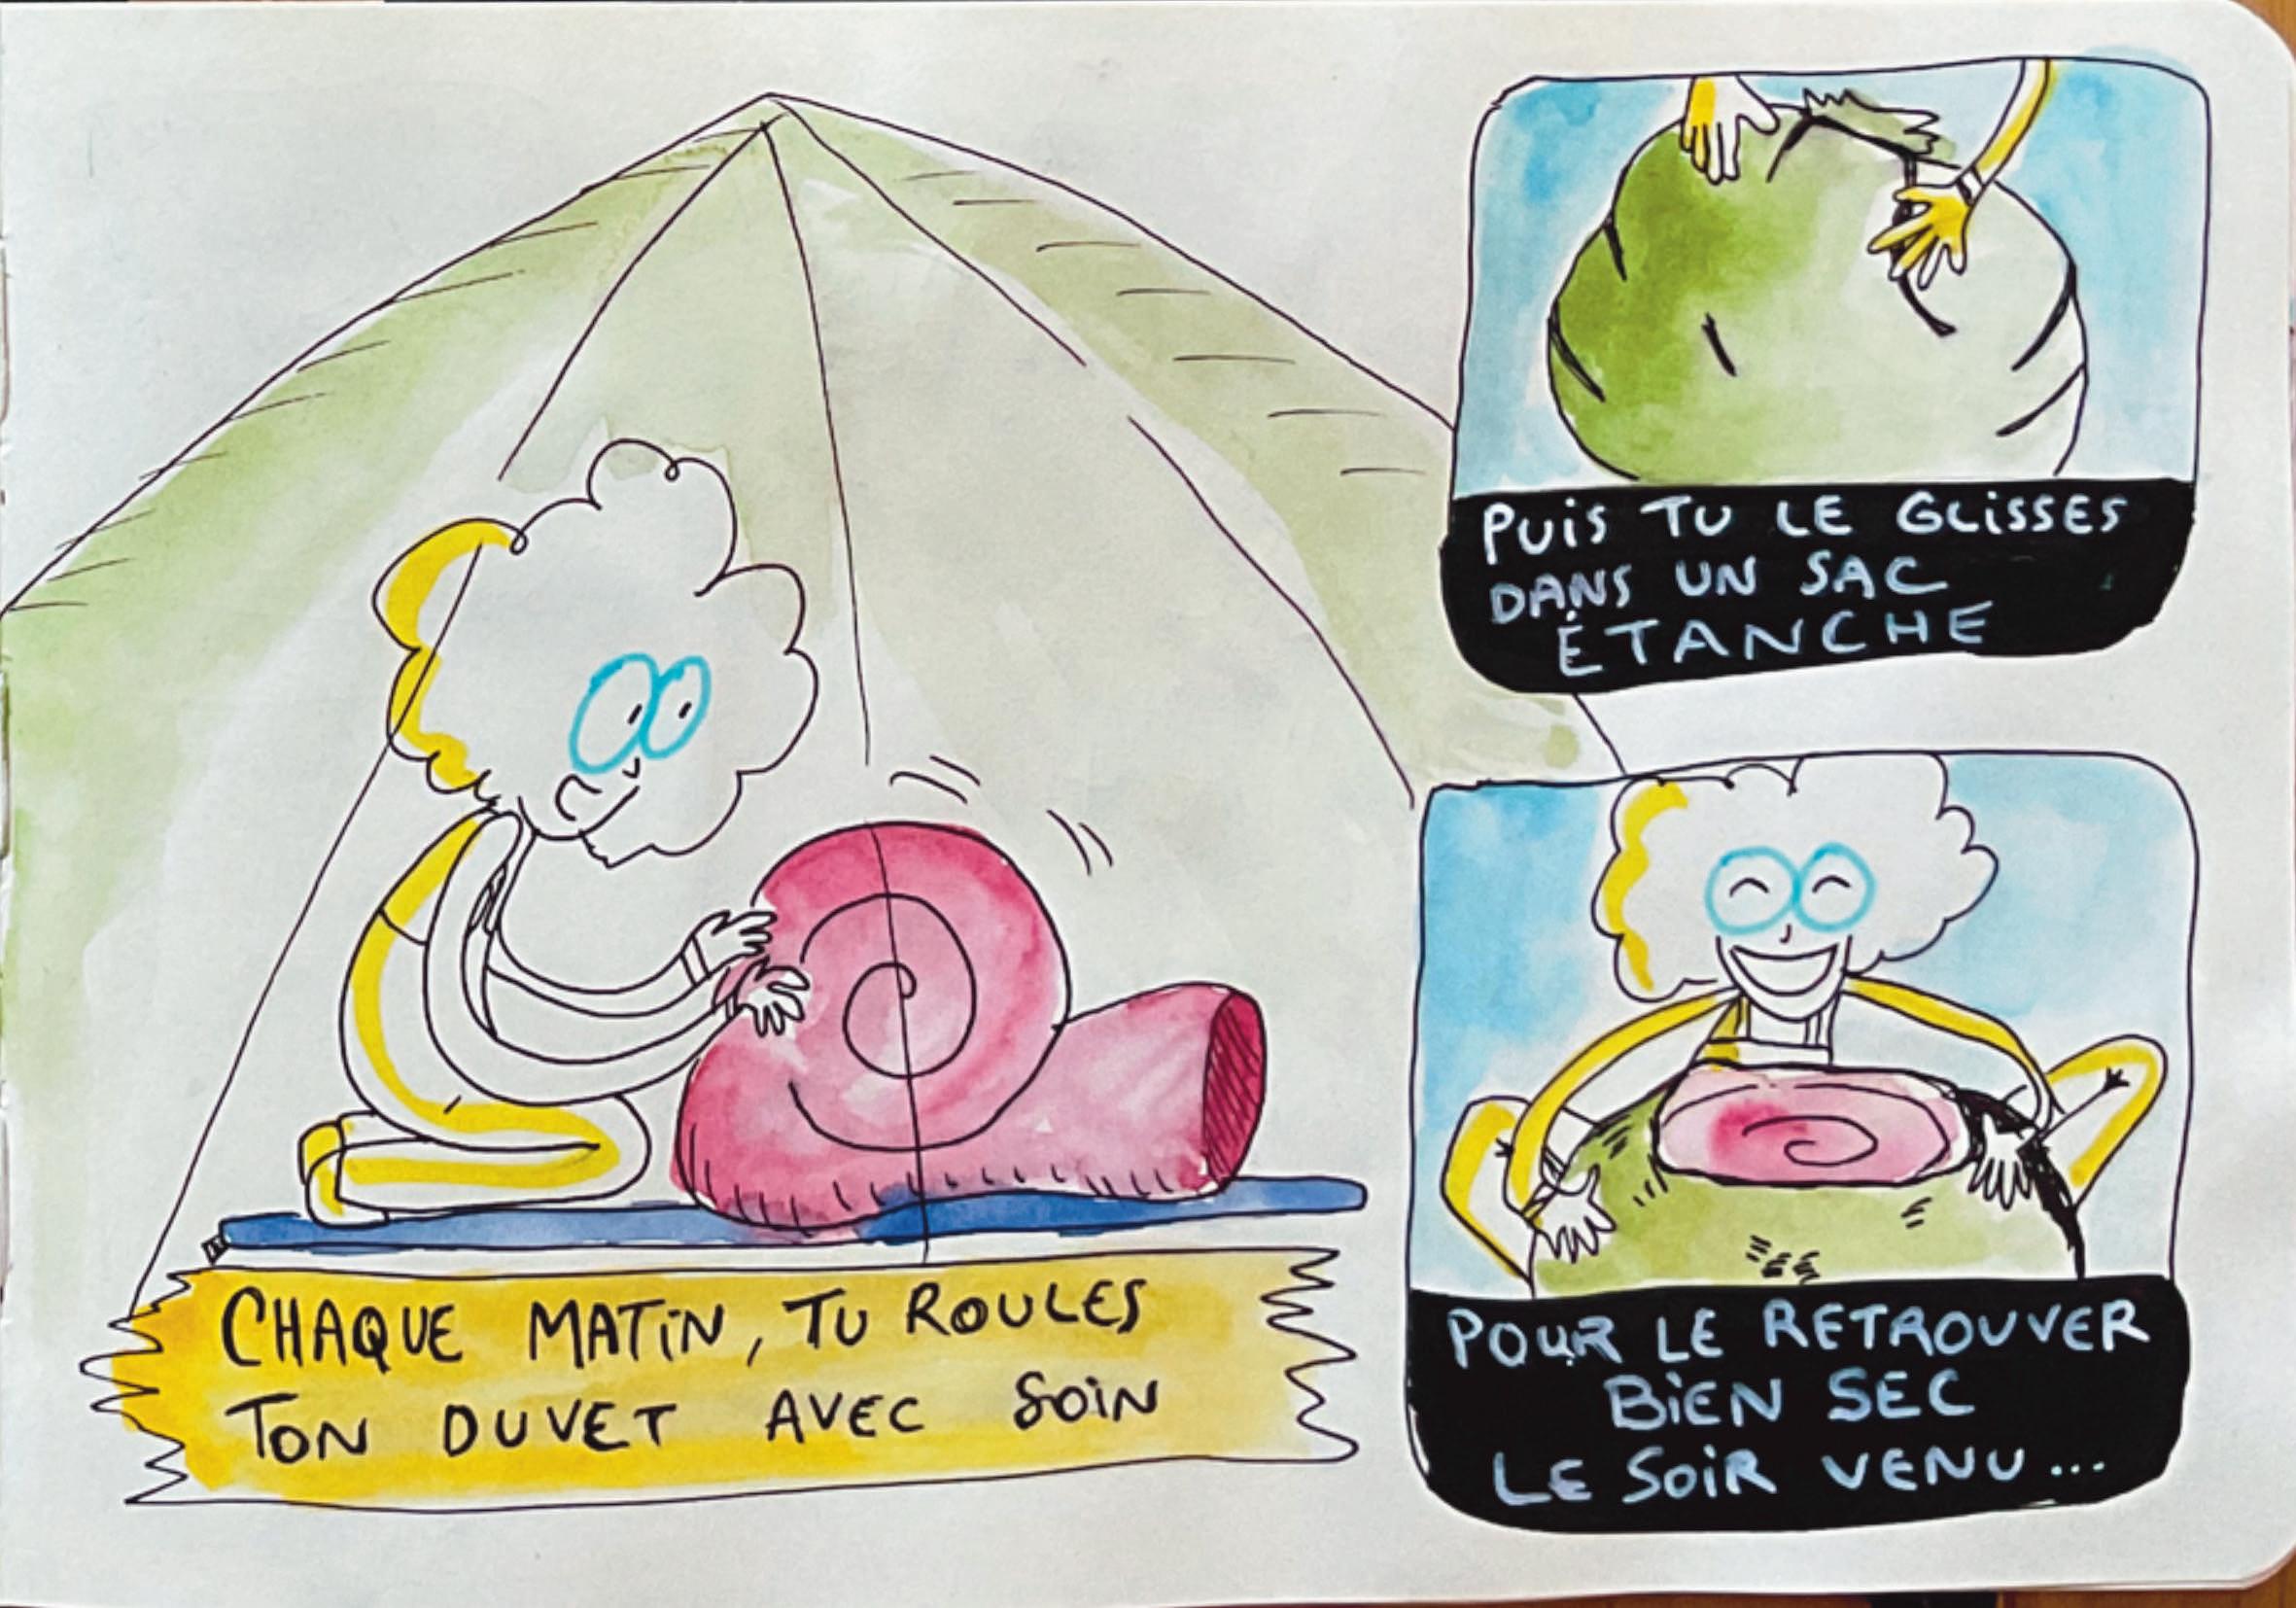 CHAQUE MATIN, TU ROULES
TON DUVET AVEC SOIN
PUIS TU LE GLISSES
DANS UN SAC
ÉTANCHE
POUR LE RETROUVER
BIEN SEC
LE SOIR VENU...